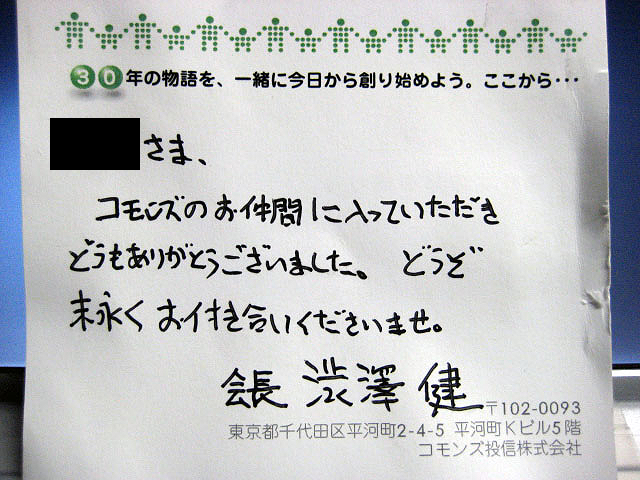 30年の物語を、一緒に今日から創り始めよう。ここから･･･
さま、
コモンズのお仲間に入っていただき
どうもありがとうございました。 どうぞ
末永くお付き合いくださいませ。
会長 渋澤 健
〒102-0093
東京都千代田区平河町2-4-5 平河町Kビル5階
コモンズ投信株式会社